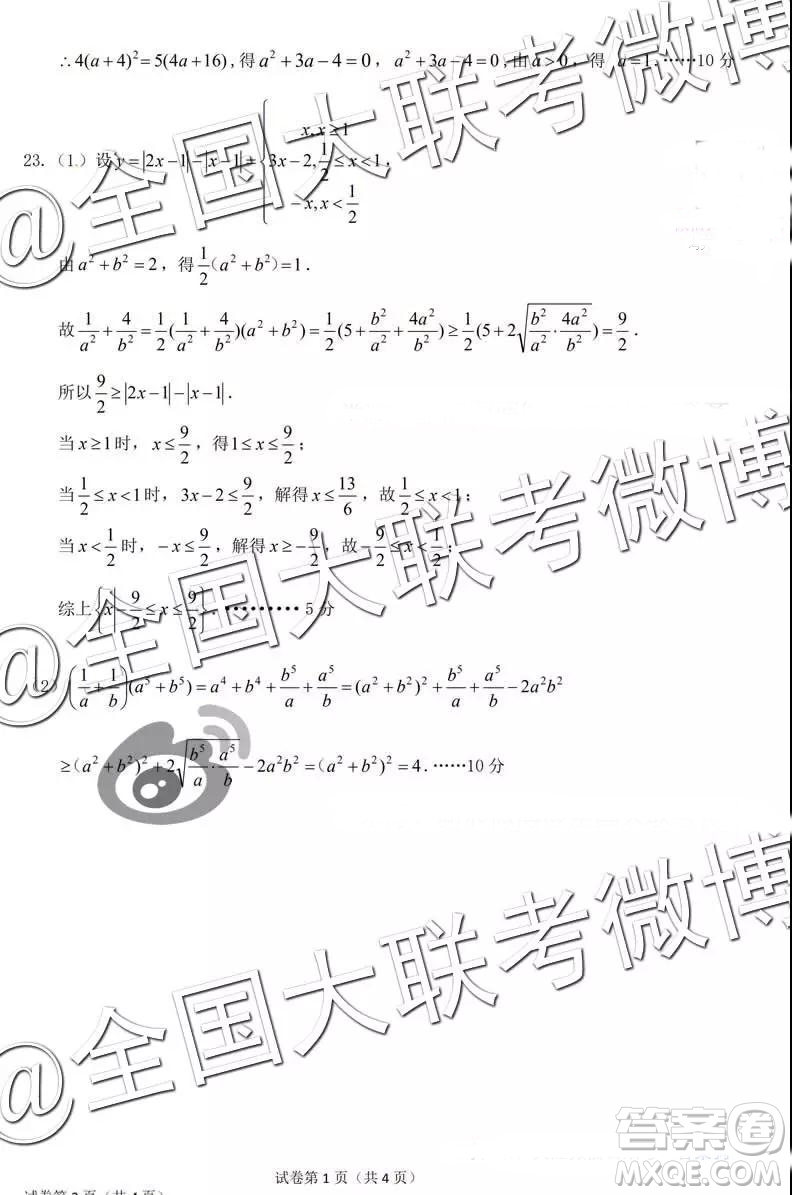 ∴4(a+4)²=5(4a+16), 得 a²+3a-4=0, a²+3a-4=0, 由 a>0, 得 a=1. ……10 分
23. (1.) 设 y=|2x-1|-|x-1|={x, x≥1; 3x-2, 1/2≤x<1; -x, x<1/2},
由 a²+b²=2, 得 1/2(a²+b²)=1.
故 1/a²+4/b²=1/2(1/a²+4/b²)(a²+b²)=1/2(5+b²/a²+4a²/b²)≥1/2(5+2√(b²/a²·4a²/b²))=9/2.
所以 9/2≥|2x-1|-|x-1|.
当 x≥1 时, x≤9/2, 得 1≤x≤9/2;
当 1/2≤x<1 时, 3x-2≤9/2, 解得 x≤13/6, 故 1/2≤x<1;
当 x<1/2 时, -x≤9/2, 解得 x≥-9/2, 故 -9/2≤x<1/2;
综上 {x|-9/2≤x≤9/2}. ………… 5 分
(2) (1/a+1/b)(a⁵+b⁵)=a⁴+b⁴+b⁵/a+a⁵/b=(a²+b²)²+b⁵/a+a⁵/b-2a²b²
≥(a²+b²)²+2√(b⁵/a·a⁵/b)-2a²b²=(a²+b²)²=4. ……10 分
@全国大联考微博
@全国大联考微博
@全国大联考微博
@全国大联考微博
答案卷
MXQE.COM
试卷第 1 页（共 4 页）
试卷第 2 页（共 4 页）